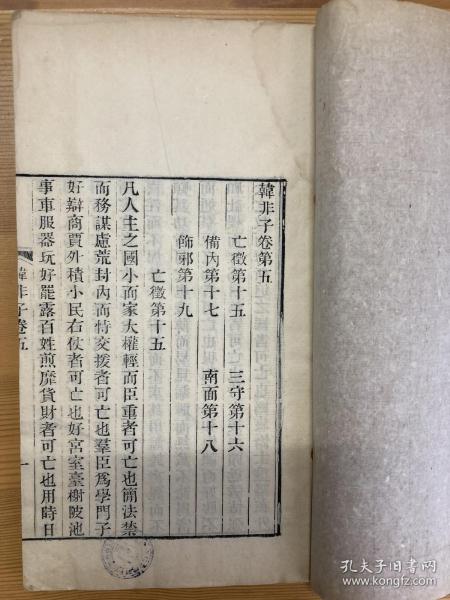 韓非子卷第五
亡徵第十五 三守第十六
備內第十七 南面第十八
飾邪第十九
亡徵第十五
凡人主之國小而家大權輕而臣重者可亡也簡法禁
而務謀慮荒封內而恃交援者可亡也羣臣爲學門子
好辯商賈外積小民右仗者可亡也好宮室臺榭陂池
事車服器玩好罷露百姓煎靡貨財者可亡也用時日
韓非子卷五
一
孔夫子旧书网
www.kongfz.com